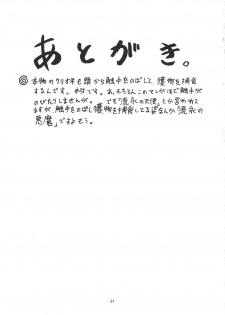 あとがき。
◎本物のクリオネも頭から触手をのばして、獲物を捕食
するんです。本当です。あ、もちろんこのマンガほど触手が
のびたりしませんが。でも「流氷の天使」とか言われて
ますが、触手をのばし獲物を捕獲してる姿なんか「流氷の
悪魔」ですよもう。
21